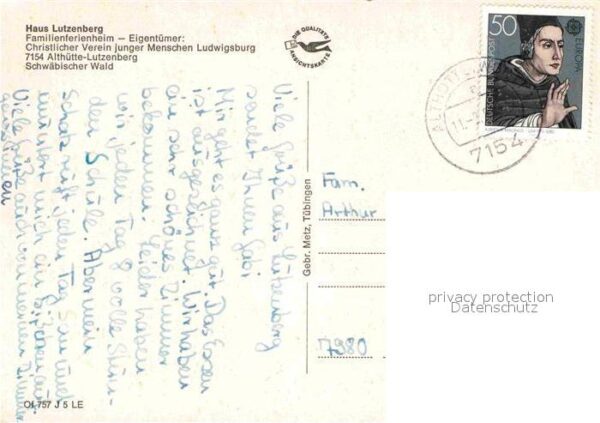 Haus Lutzenberg
Familienferienheim — Eigentümer:
Christlicher Verein junger Menschen Ludwigsburg
7154 Althütte-Lutzenberg
Schwäbischer Wald
DIE QUALITÄTS
ANSICHTSKARTE
50
EUROPA
DEUTSCHE BUNDESPOST
ALTHÜTTE
7154
Viele Grüße aus Lutzenberg
sendet Ihnen Gabi
Mir geht es ganz gut. Das Essen
ist ausgezeichnet. Wir haben
ein sehr schönes Zimmer
bekommen. Leider haben
wir jeden Tag 8 volle Stun-
den Schule. Aber mein
Schatz ruft jeden Tag an und
muntert mich ein bißchen auf.
Viele Grüße auch von meinen Zimmer
genossinnen
Gebr. Metz, Tübingen
Fam.
Arthur
7980
privacy protection
Datenschutz
OI 757 J 5 LE